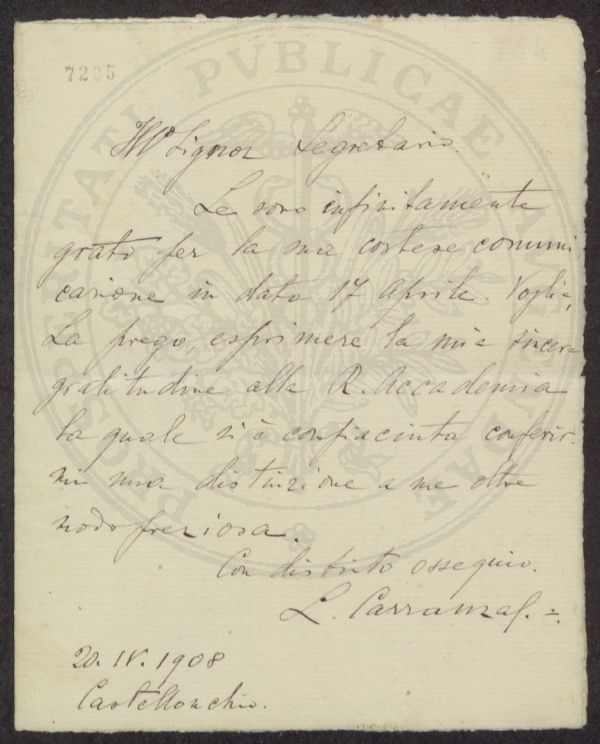 7205
PROSPERITATI PVBLICAE AVGENDAE
Ill.º Signor Segretario.
Le sono infinitamente
grato per la sua cortese comuni
cazione in data 17 Aprile. Voglia,
La prego, esprimere la mia sincera
gratitudine alla R. Accademia
la quale si è compiaciuta conferir-
mi una distinzione a me oltre
modo preziosa.
Con distinto ossequio.
L.
20.IV.1908
Castellonchio.